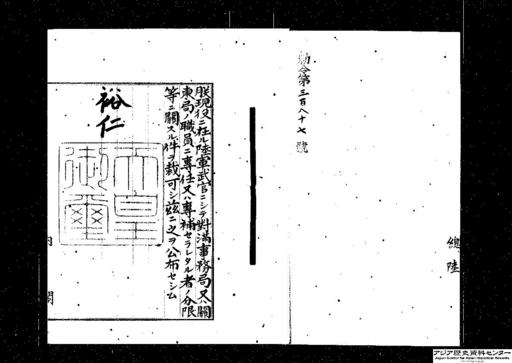 勅令第三百八十七號
朕現役ニ在ル陸軍武官ニシテ對滿事務局又ハ關
東局ノ職員ニ專任又ハ專補セラレタル者ノ分限
等ニ關スル件ヲ裁可シ茲ニ之ヲ公布セシム
裕仁
天皇
御璽
內閣
總
陸
アジア歴史資料センター
Japan Center for Asian Historical Records